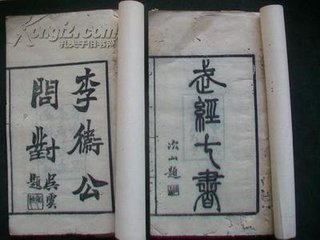 Kongfz.com
孔夫子旧书网
李衛公
問對
吳雲
題
武經七書
次山題